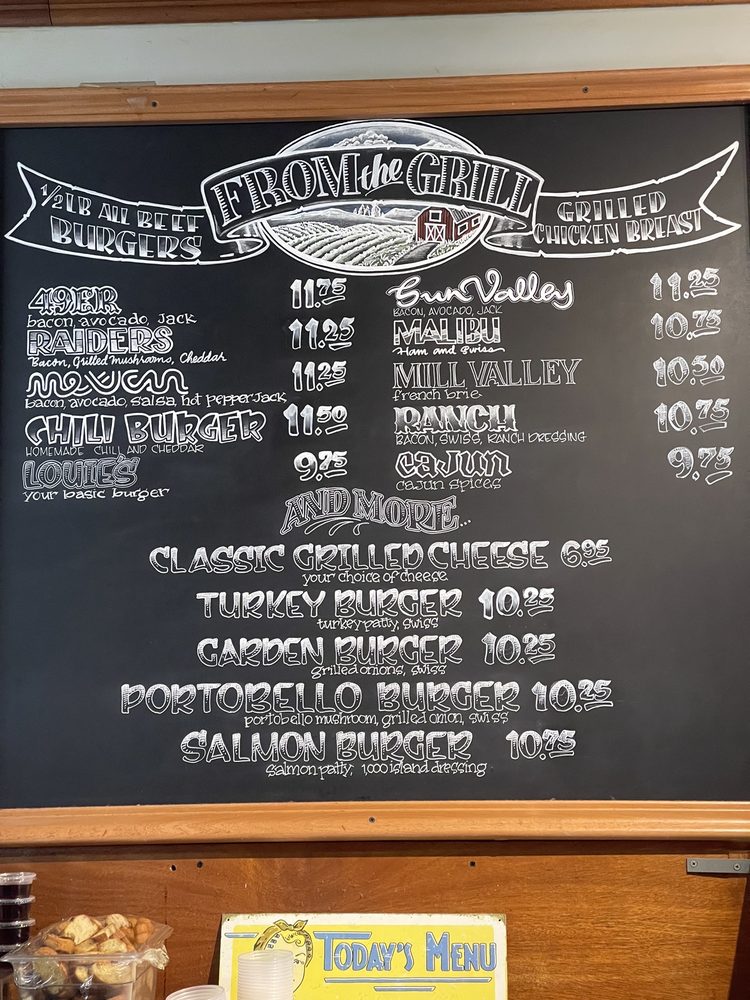 FROM the GRILL
1/2 LB ALL BEEF
BURGERS
GRILLED
CHICKEN BREAST
49ER 11.75
bacon, avocado, Jack
RAIDERS 11.25
Bacon, Grilled mushrooms, Cheddar
mexican 11.25
bacon, avocado, salsa, hot pepper jack
CHILI BURGER 11.50
HOMEMADE CHILI AND CHEDDAR
LOUIE'S 9.75
your basic burger
Sun Valley 11.25
BACON, AVOCADO, JACK
MALIBU 10.75
Ham and Swiss
MILL VALLEY 10.50
french brie
RANCH 10.75
BACON, SWISS, RANCH DRESSING
CAJUN 9.75
cajun spices
AND MORE...
CLASSIC GRILLED CHEESE 6.95
your choice of cheese
TURKEY BURGER 10.25
turkey patty, swiss
GARDEN BURGER 10.25
grilled onions, swiss
PORTOBELLO BURGER 10.25
portobello mushroom, grilled onion, swiss
SALMON BURGER 10.75
salmon patty, 1000 island dressing
TODAY'S MENU